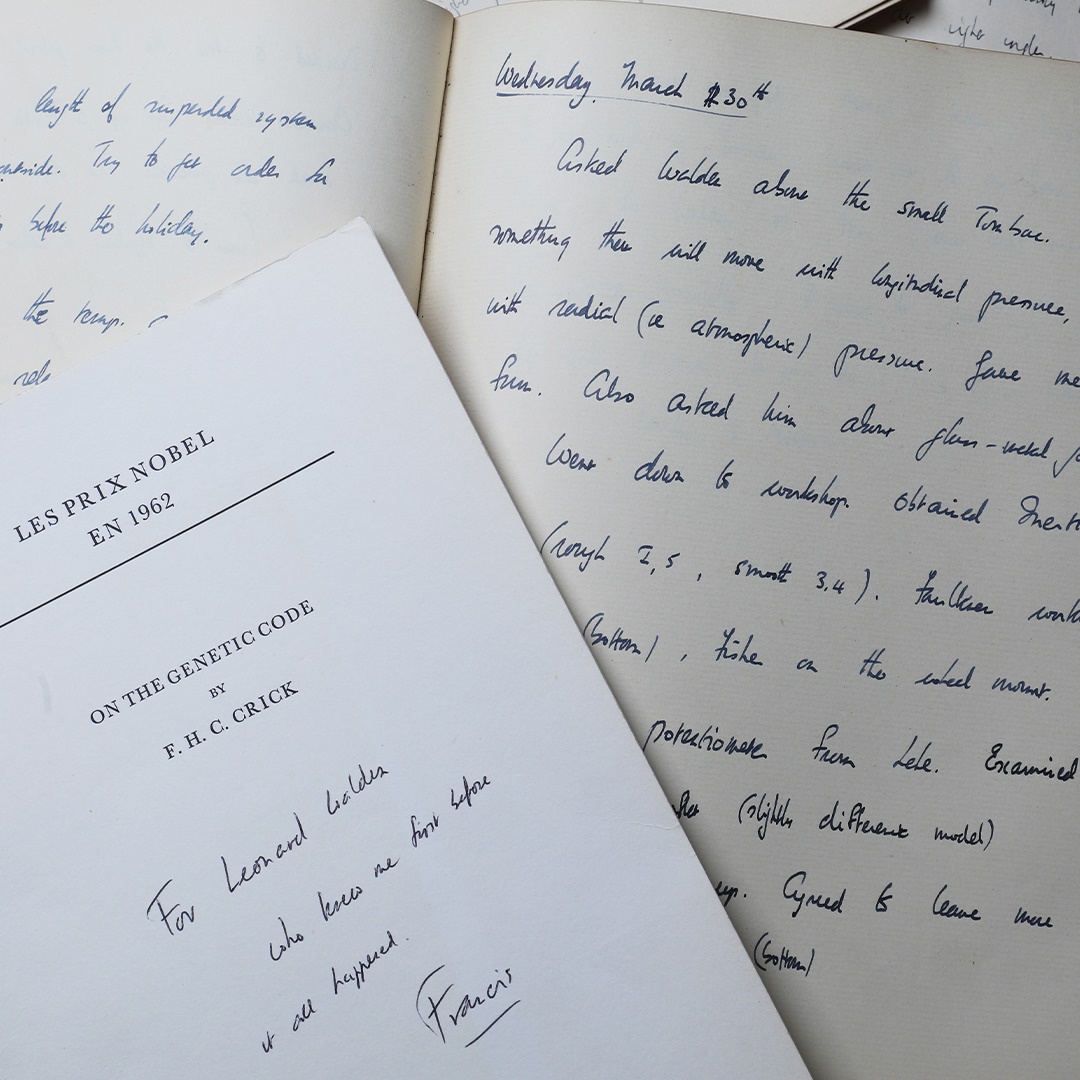 length of suspended system
Try to get order for
before the holiday.
the temp.
Wednesday March 30th
Asked Walden about the small Tombac.
something then will move with longitudinal pressure,
with radial (ie atmospheric) pressure. Gave me
from. Also asked him about glass-metal
Went down to workshop. Obtained
(rough I, 5, smooth 3,4). Faulkner
(bottom), Fisher on the wheel mount.
potentiometer from Lele. Examined
(slightly different model)
up. Agreed to leave more
(bottom)
LES PRIX NOBEL
EN 1962
ON THE GENETIC CODE
BY
F. H. C. CRICK
For Leonard Walden
who knew me first before
it all happened.
Francis